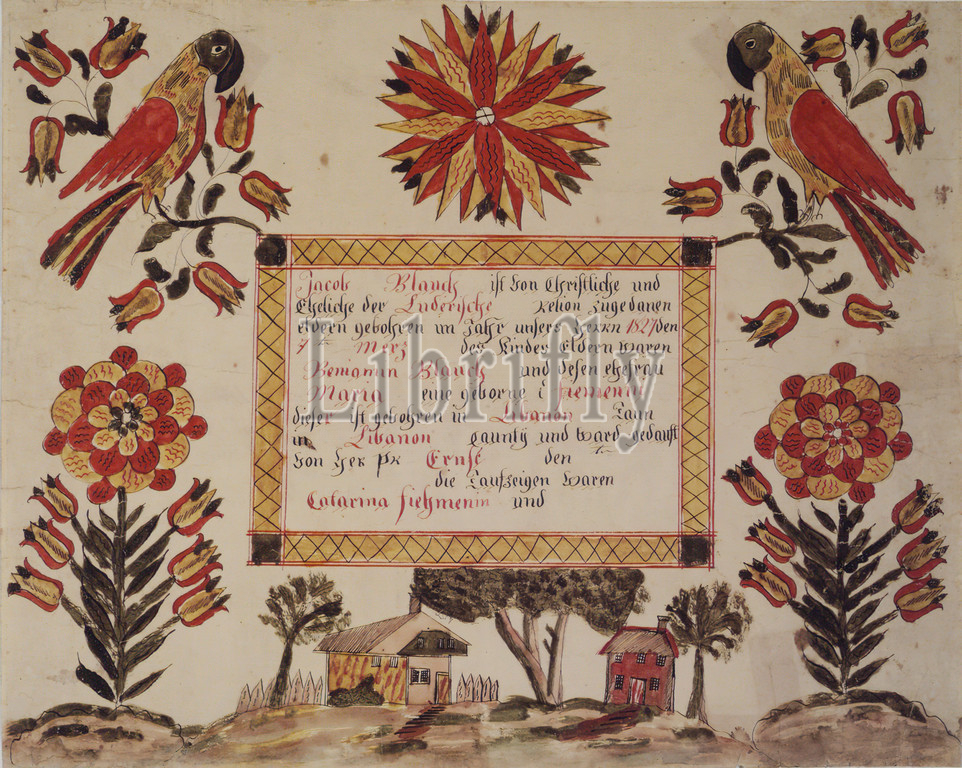 Jacob Blauch ist Von Christliche und
Eheliche der Luderische Zugedanen
eldern gebohren im Jahr unsers Herrn 1827 den
7ten Merz des Kindes Eldern waren
Blauch und desen ehefrau
Maria eine geborne
dieser ist gebohren in Libanon Taun
in Libanon gaunty und Ward gedauft
Von Her Pr Ernst den
die Taufzeigen Waren
Catarina und
Librifly